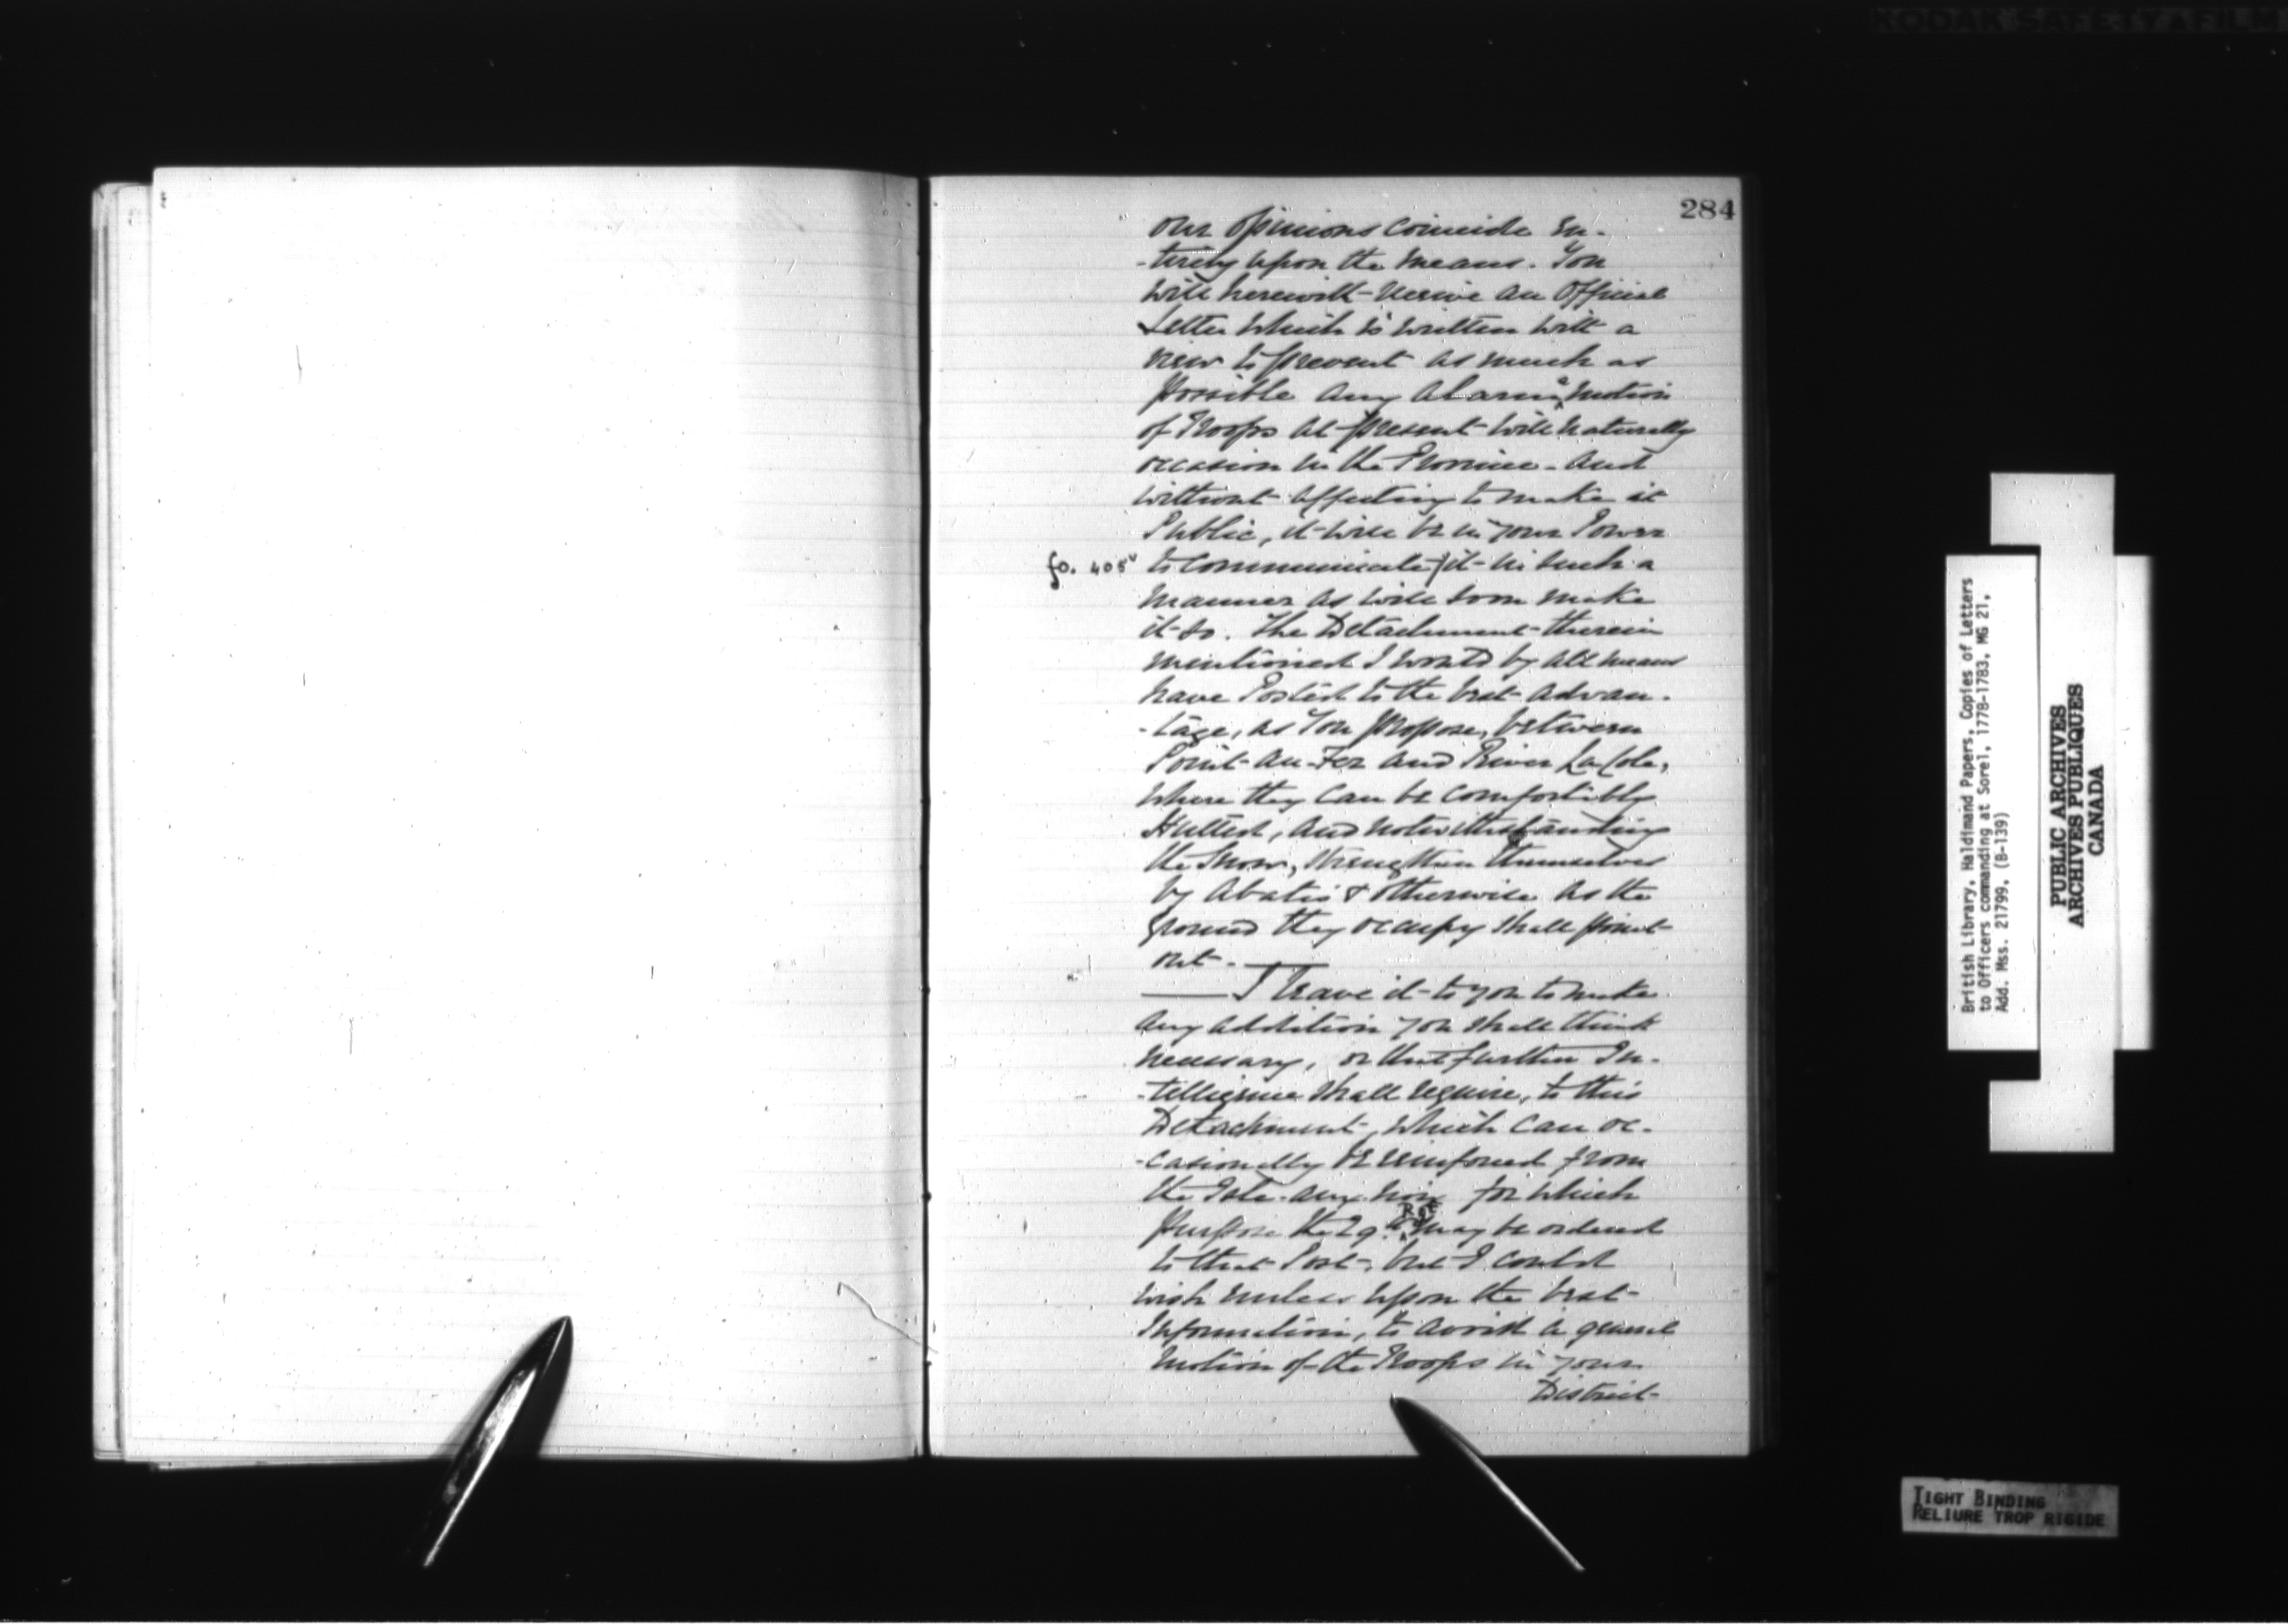 KODAK SAFETY FILM
284
our opinions coincide en-
-tirely upon the means. You
will herewith receive an Official
Letter which is written with a
view to prevent as much as
possible any alarm a motion
of Troops at present will naturally
occasion in the Province - and
without affecting to make it
Public, it will be in your Power
fo. 405v to communicate / it in such a
manner as will soon make
it so. The Detachment therein
mentioned I would by all means
have Posted to the best advan-
-tage, as You propose, between
Point-au-Fer and River La Cole,
where they can be comfortibly
Hutted, and notwithstanding
the Snow, strengthen themselves
by Abatis & otherwise as the
ground they occupy shall point
out.
I leave it to you to make
any addition you shall think
necessary, or that further In-
-telligence shall require, to this
Detachment, which can oc-
-casionally be reinforced from
the Isle-aux-noix for which
purpose the 29th Regt may be ordered
to that Post, but I could
wish unless upon the best
Information, to avoid a general
motion of the Troops in your
District
British Library, Haldimand Papers, Copies of Letters
to Officers commanding at Sorel, 1778-1783, MG 21,
Add. Mss. 21799, (B-139)
PUBLIC ARCHIVES
ARCHIVES PUBLIQUES
CANADA
TIGHT BINDING
RELIURE TROP RIGIDE